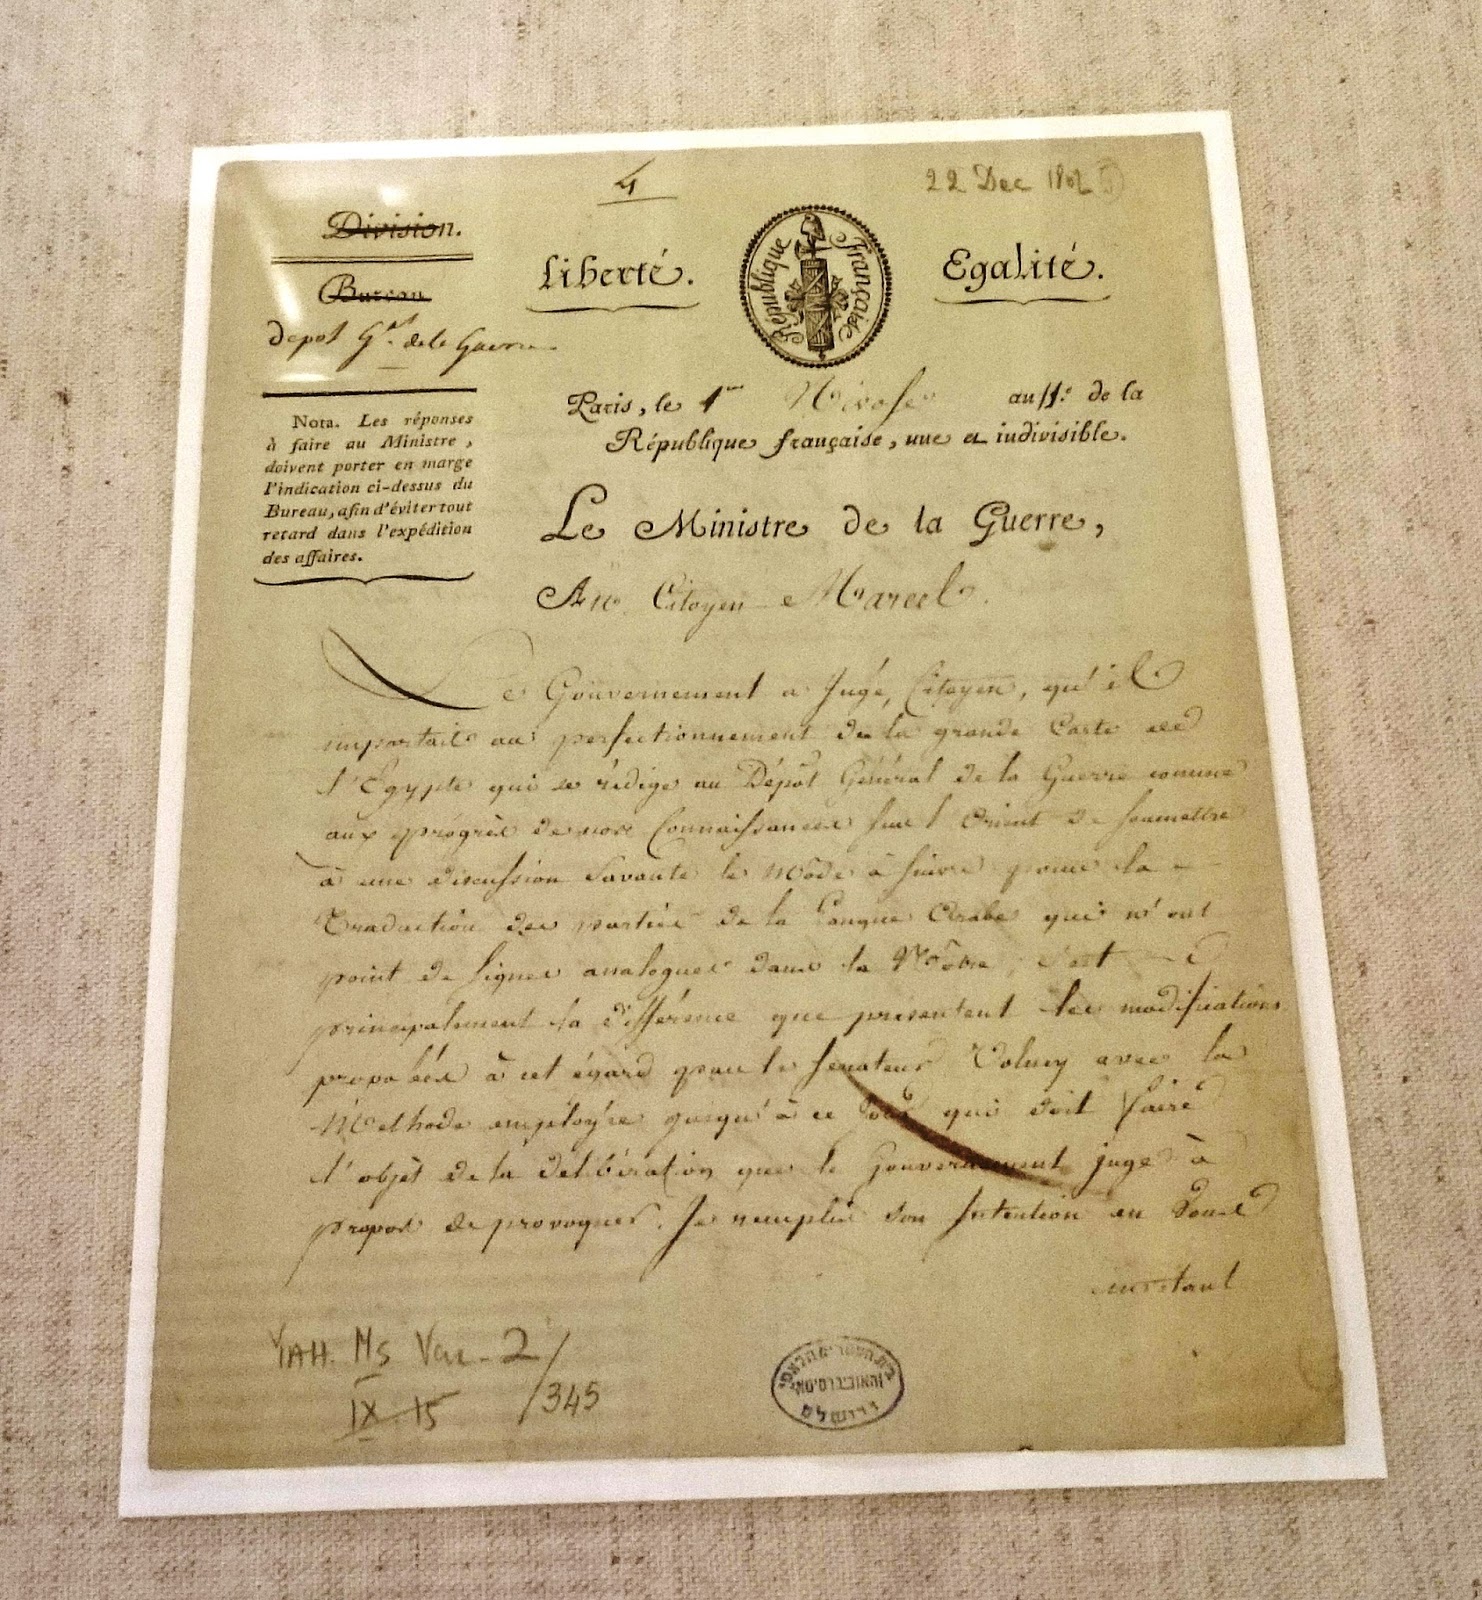 4
22 Dec 1802
Division.
Bureau
depot Gal. de la Guerre
Liberté.
République Française
Egalité.
Nota. Les réponses
à faire au Ministre,
doivent porter en marge
l'indication ci-dessus du
Bureau, afin d'éviter tout
retard dans l'expédition
des affaires.
Paris, le 1er Nivose an 11.e de la
République française, une et indivisible.
Le Ministre de la Guerre,
Au Citoyen Marcel.
Le Gouvernement a Jugé, Citoyen, qu'il
importait au perfectionnement de la grande Carte de
l'Egypte qui se rédige au Dépôt Général de la Guerre comme
aux progrès de nos Connaissances sur l'Orient de soumettre
à une discussion Savante le Mode à suivre pour la
Traduction des parties de la Langue Arabe qui n'ont
point de signes analogues dans la Nôtre, c'est
principalement la différence que présentent les modifications
proposées à cet égard par le Senateur Volney avec la
Methode employée jusqu'à ce Jour qui doit faire
l'objet de la deliberation que le Gouvernement juge à
propos de provoquer. Je remplis son Intention en Vous
invitant
YAH. Ms Var. 2/
IX 15 /345
בית הספרים הלאומי
והאוניברסיטאי
ירושלים